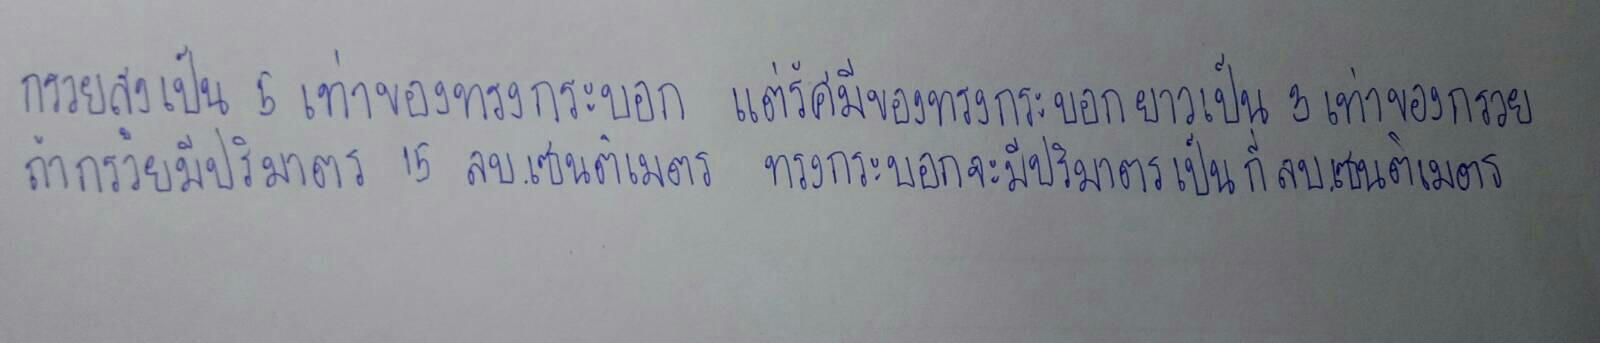 กรวยสูงเป็น 5 เท่าของทรงกระบอก แต่รัศมีของทรงกระบอกยาวเป็น 3 เท่าของกรวย
ถ้ากรวยมีปริมาตร 15 ลบ.เซนติเมตร ทรงกระบอกจะมีปริมาตรเป็นกี่ ลบ.เซนติเมตร